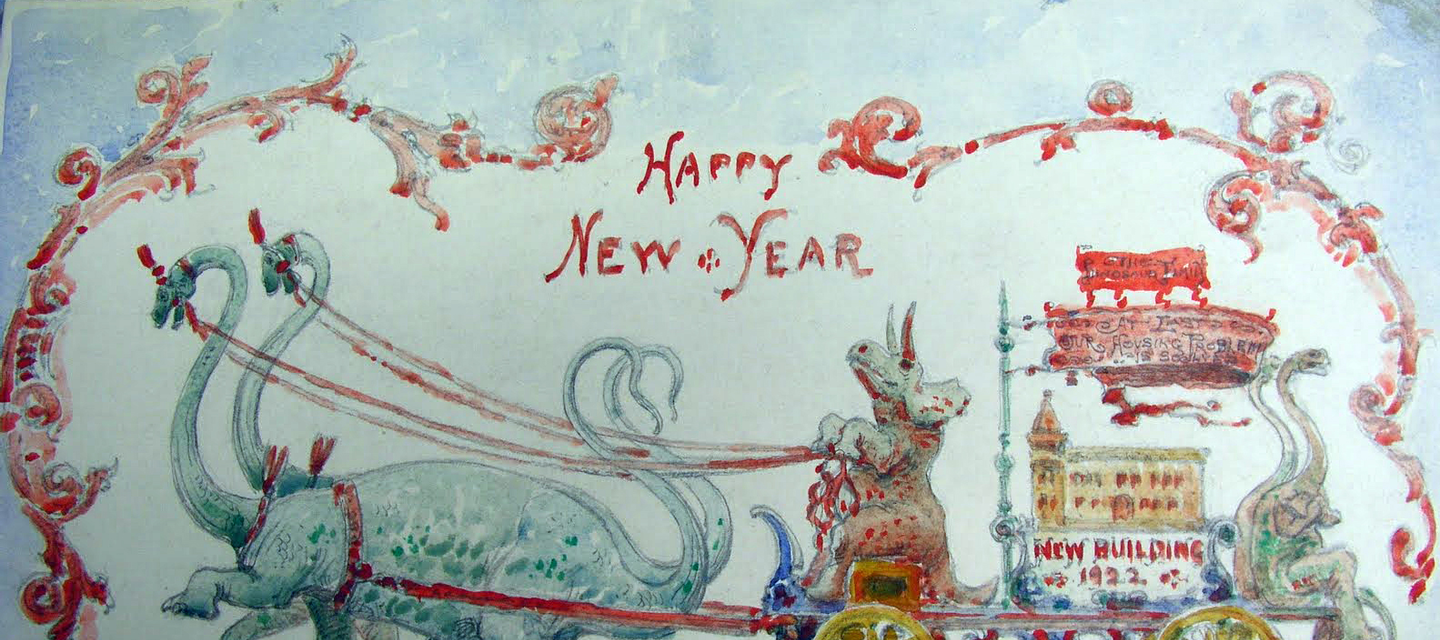 HAPPY
NEW YEAR
THE
DINOSAUR FAMILY
AT LAST
OUR HOUSING PROBLEM
IS SOLVED
NEW BUILDING
1922